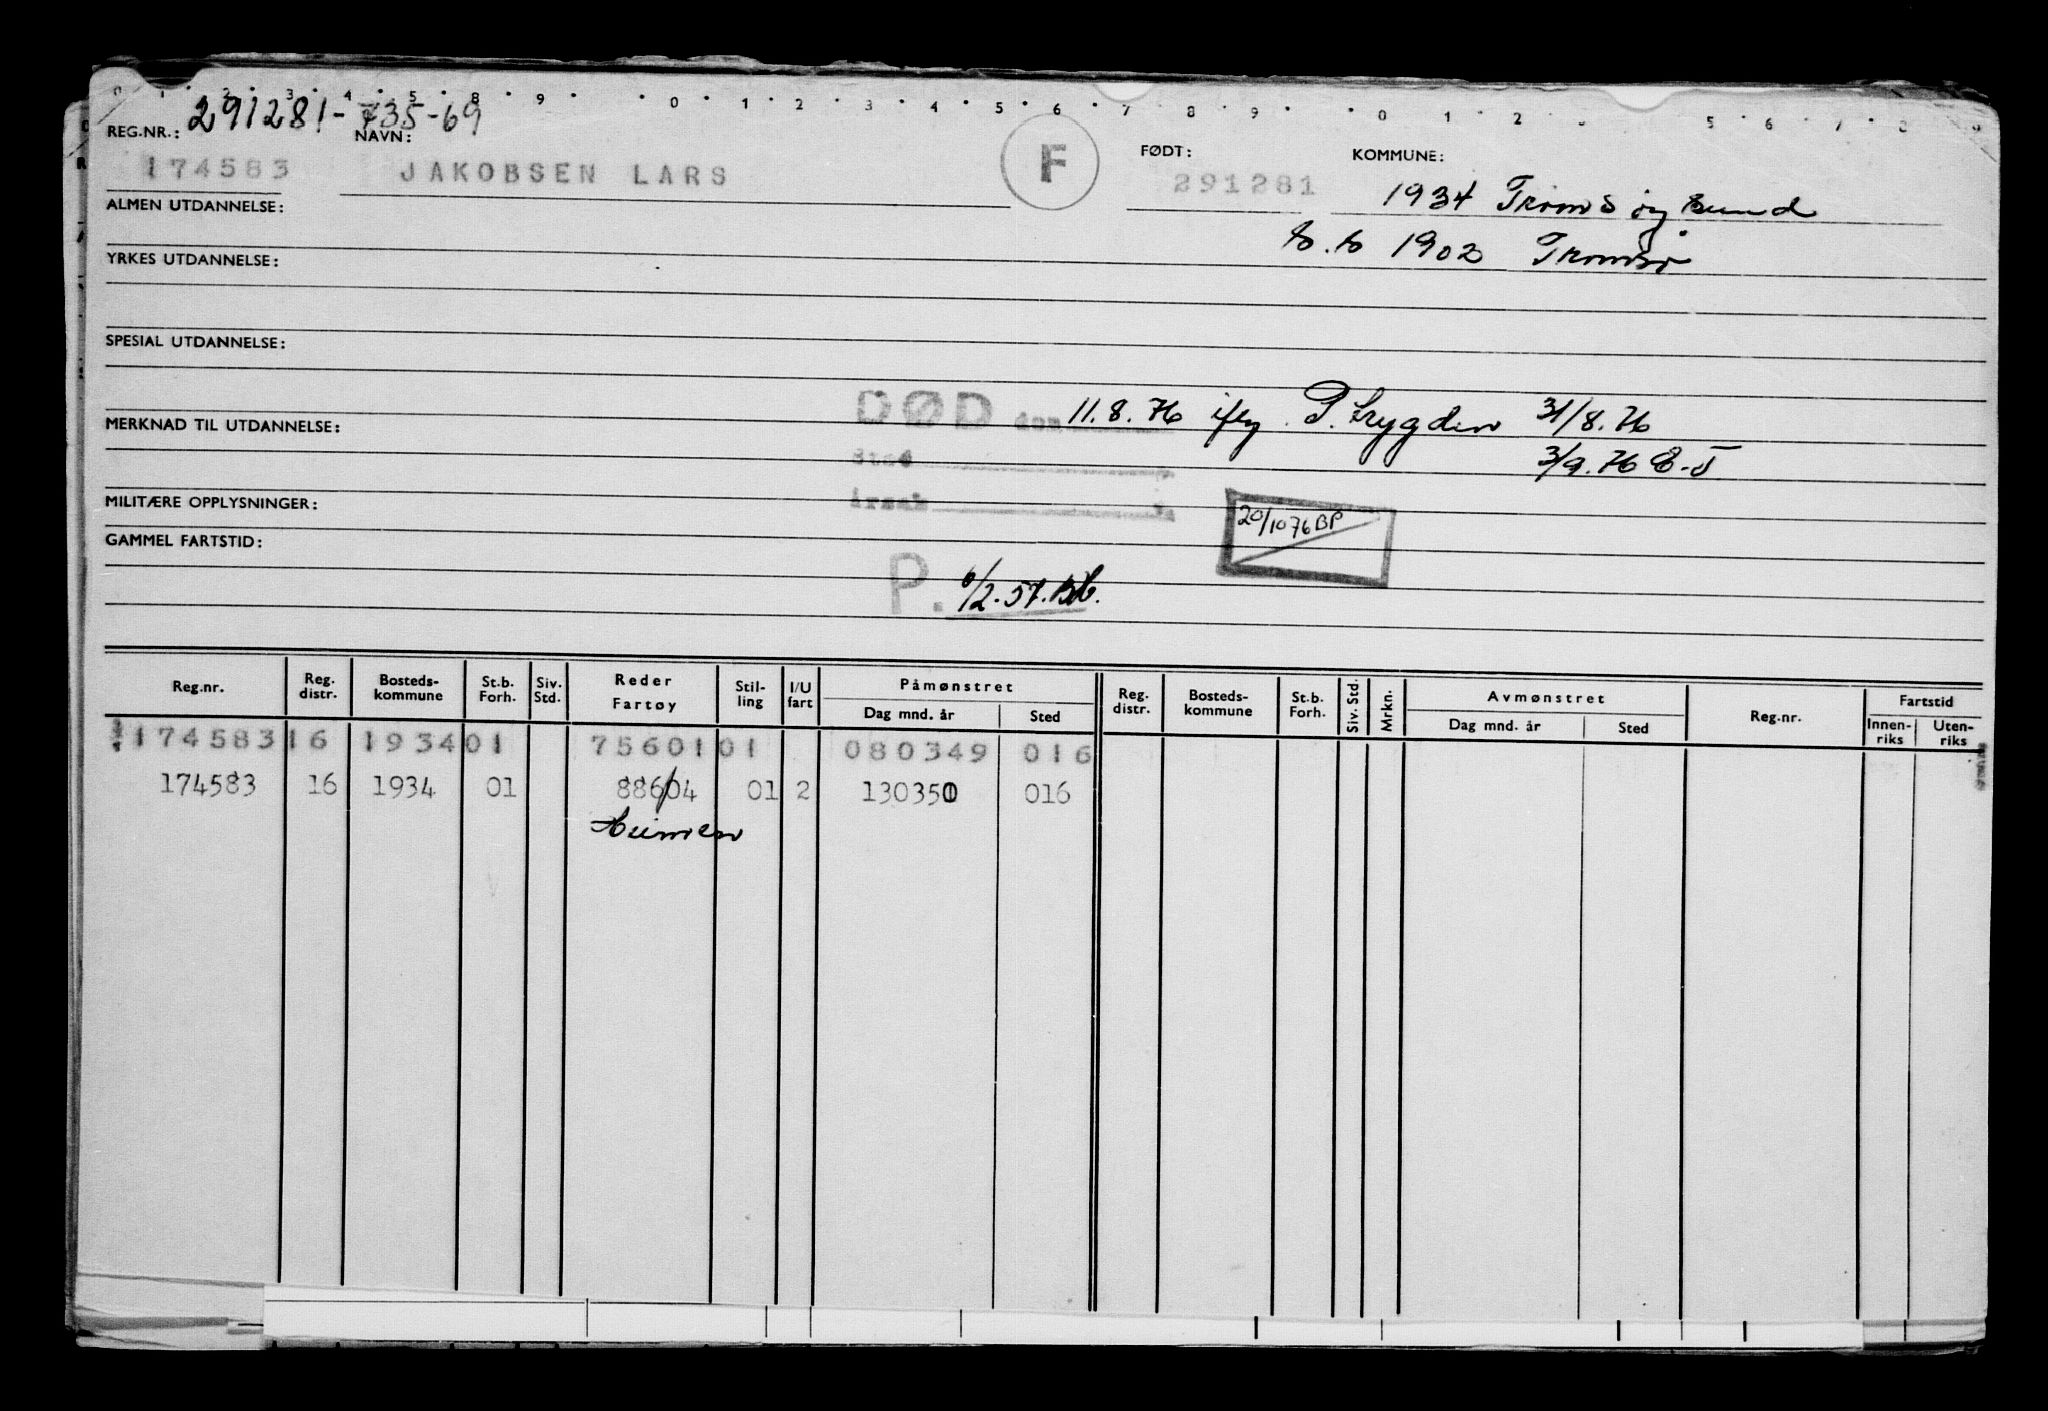 291281-735-69
REG.NR.: NAVN: FØDT: KOMMUNE:
174583 JAKOBSEN LARS F 291281 1934 Tromsøysund
ALMEN UTDANNELSE:
1902 Tromsø
YRKES UTDANNELSE:
SPESIAL UTDANNELSE:
DØD den 11.8.76 ifлg P. trygden 31/8.76
MERKNAD TIL UTDANNELSE:
Sted 3/9.76
MILITÆRE OPPLYSNINGER: Årsak
20/10 76 BP
GAMMEL FARTSTID:
P.
Reg.nr. Reg. distr. Bosteds-kommune St.b. Forh. Siv. Std. Reder Fartøy Stil-ling I/U fart Påmønstret Dag mnd. år Sted Reg. distr. Bosteds-kommune St.b. Forh. Siv. Std. Mrkn. Avmønstret Dag mnd. år Sted Reg.nr. Fartstid Innen-riks Uten-riks
174583 16 1934 01 75601 01 080349 016
174583 16 1934 01 88604 01 2 130350 016